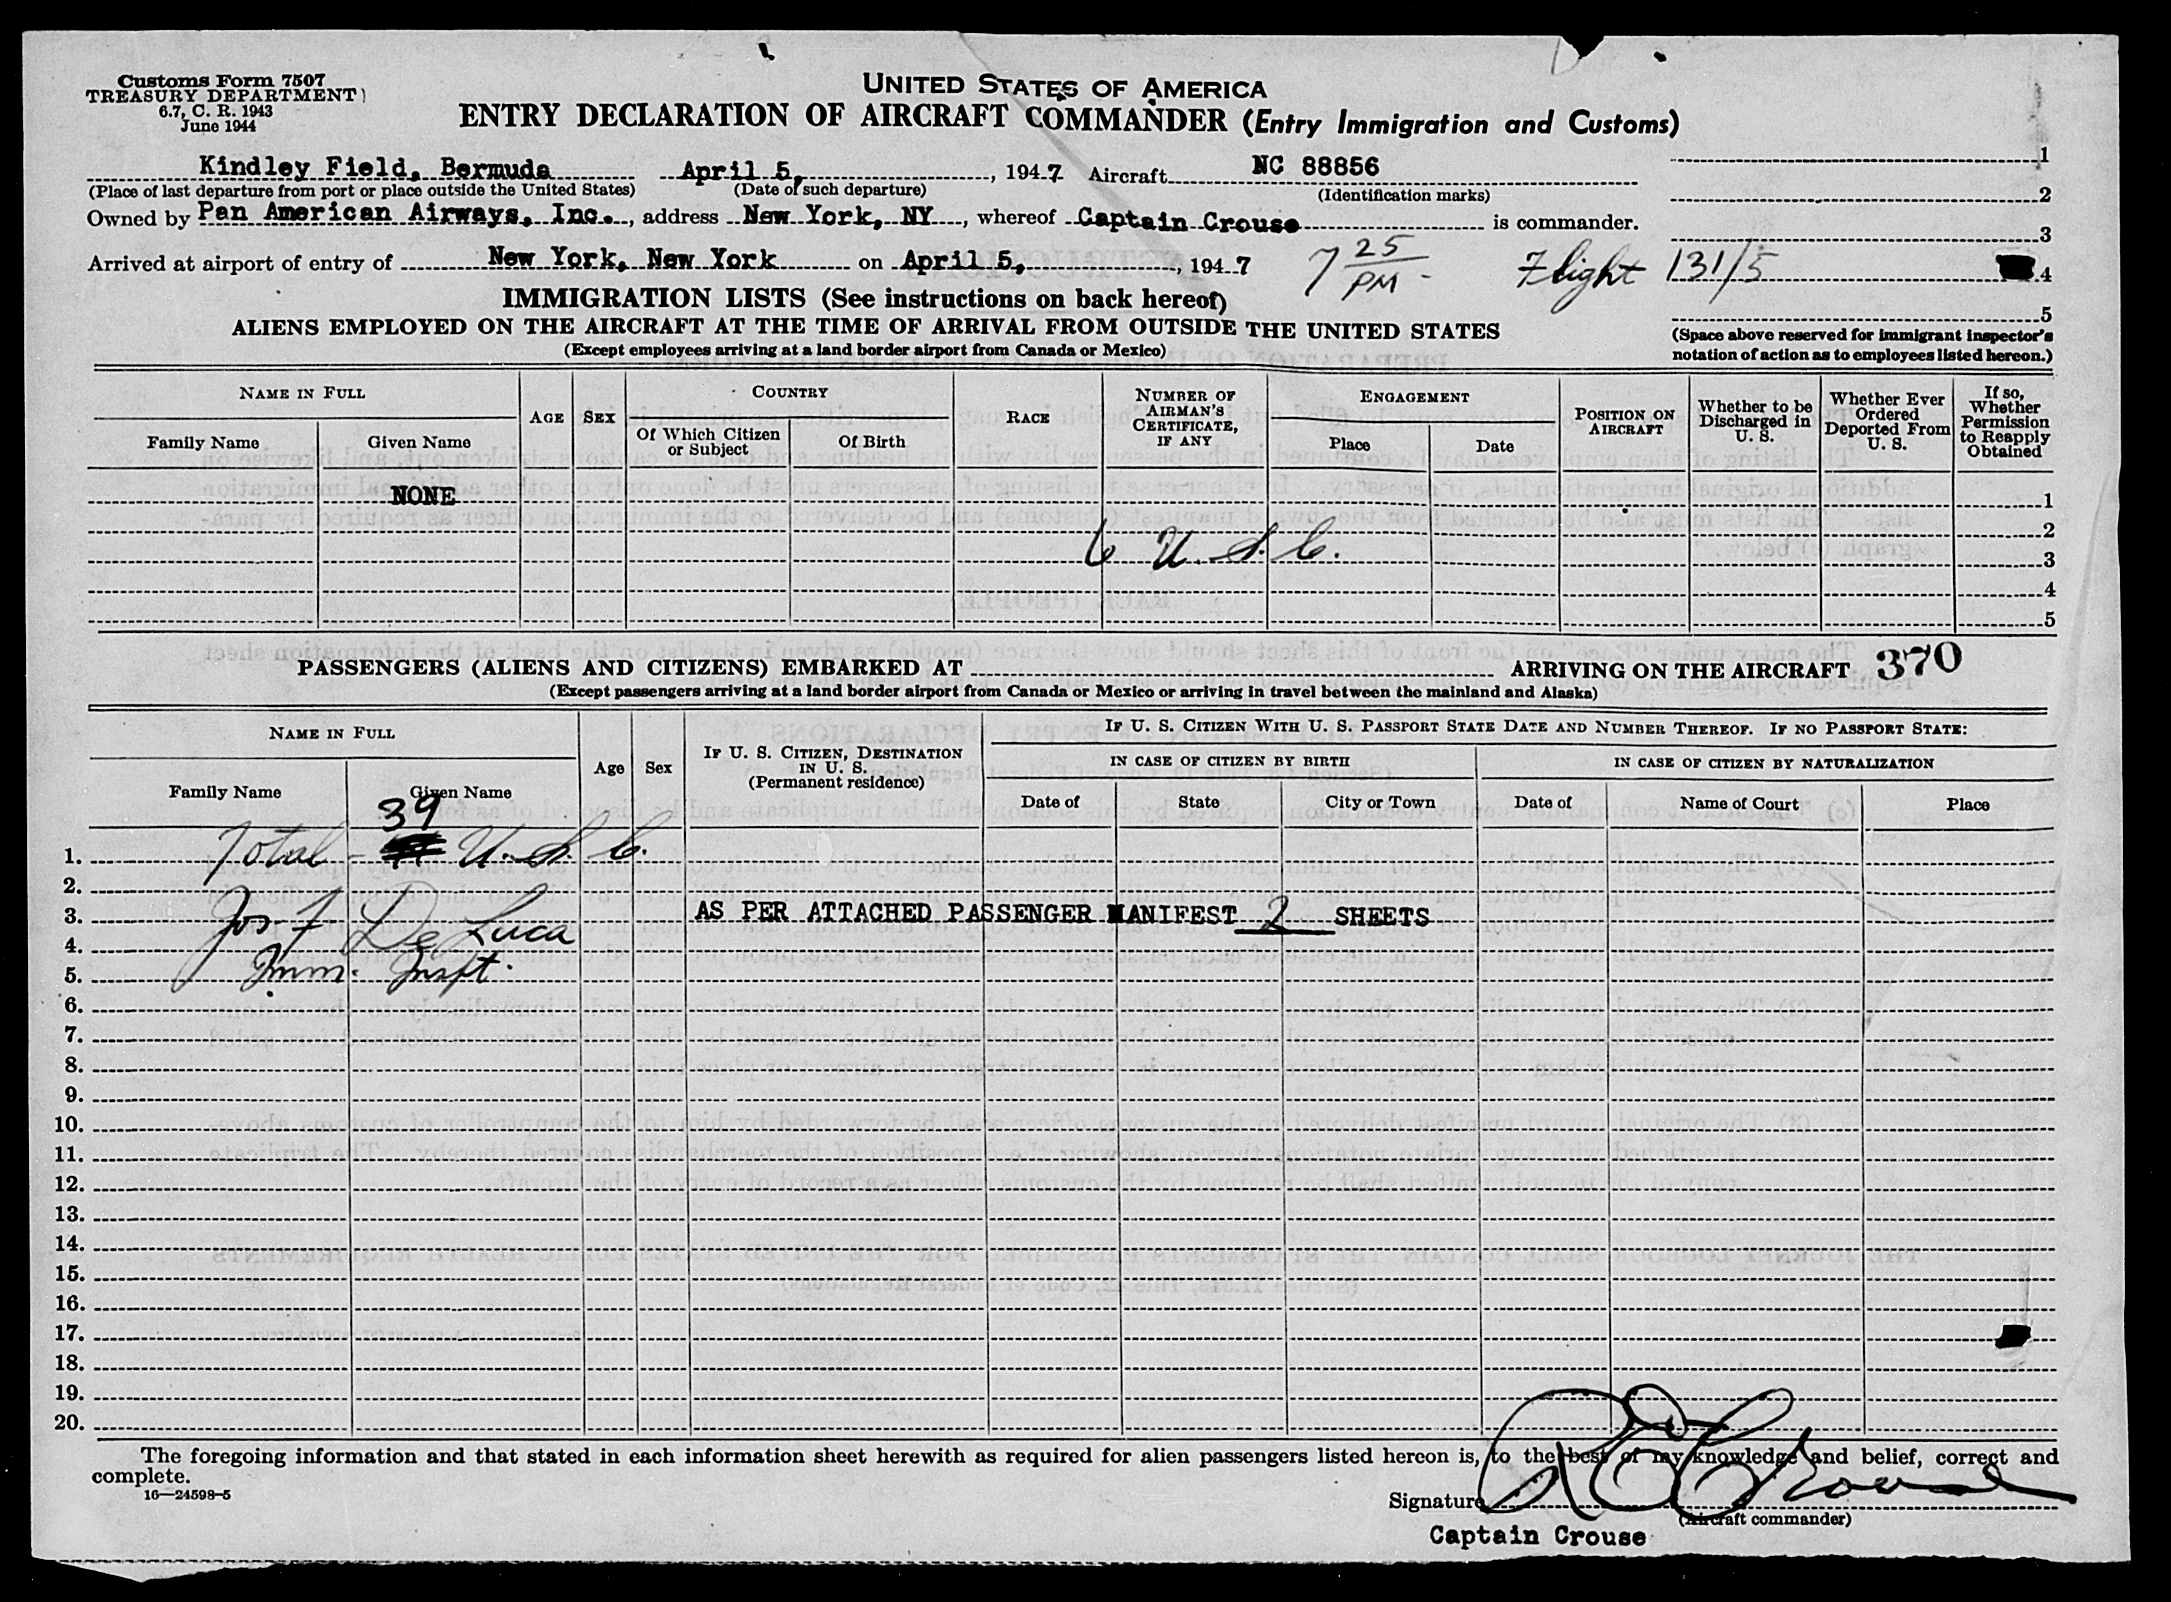 Customs Form 7507
TREASURY DEPARTMENT
6.7, C. R. 1943
June 1944
UNITED STATES OF AMERICA
ENTRY DECLARATION OF AIRCRAFT COMMANDER (Entry Immigration and Customs)
Kindley Field, Bermuda April 5, 1947 Aircraft NC 88856
(Place of last departure from port or place outside the United States) (Date of such departure) (Identification marks)
Owned by Pan American Airways, Inc., address New York, NY, whereof Captain Crouse is commander.
Arrived at airport of entry of New York, New York on April 5, 1947 7 25 PM - Flight 131/5
1
2
3
4
5
(Space above reserved for immigrant inspector's
notation of action as to employees listed hereon.)
IMMIGRATION LISTS (See instructions on back hereof)
ALIENS EMPLOYED ON THE AIRCRAFT AT THE TIME OF ARRIVAL FROM OUTSIDE THE UNITED STATES
(Except employees arriving at a land border airport from Canada or Mexico)
NAME IN FULL
Family Name Given Name
AGE SEX
COUNTRY
Of Which Citizen or Subject Of Birth
RACE
NUMBER OF AIRMAN'S CERTIFICATE, IF ANY
ENGAGEMENT
Place Date
POSITION ON AIRCRAFT
Whether to be Discharged in U. S.
Whether Ever Ordered Deported From U. S.
If so, Whether Permission to Reapply Obtained
NONE 1
2
6 U. S. C. 3
4
5
PASSENGERS (ALIENS AND CITIZENS) EMBARKED AT ARRIVING ON THE AIRCRAFT 370
(Except passengers arriving at a land border airport from Canada or Mexico or arriving in travel between the mainland and Alaska)
NAME IN FULL
Family Name Given Name
Age Sex
IF U. S. CITIZEN, DESTINATION IN U. S.
(Permanent residence)
IF U. S. CITIZEN WITH U. S. PASSPORT STATE DATE AND NUMBER THEREOF. IF NO PASSPORT STATE:
IN CASE OF CITIZEN BY BIRTH IN CASE OF CITIZEN BY NATURALIZATION
Date of State City or Town Date of Name of Court Place
39
1. Total - U. S. C.
2.
3. Jos. F De Luca AS PER ATTACHED PASSENGER MANIFEST 2 SHEETS
4.
5. Imm. Inspt.
6.
7.
8.
9.
10.
11.
12.
13.
14.
15.
16.
17.
18.
19.
20.
The foregoing information and that stated in each information sheet herewith as required for alien passengers listed hereon is, to the best of my knowledge and belief, correct and
complete.
16—24598-5
Signature R E Crouse
(Aircraft commander)
Captain Crouse